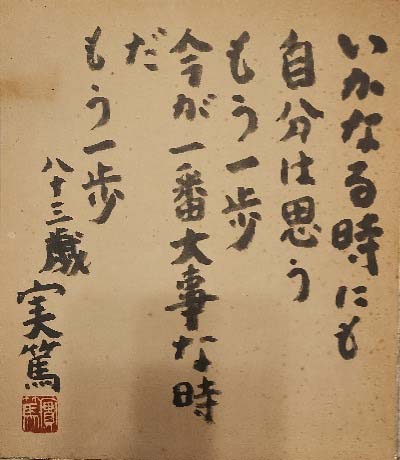 いかなる時にも
自分は思う
もう一歩
今が一番大事な時
だ
もう一歩
八十三歳
実篤
實篤